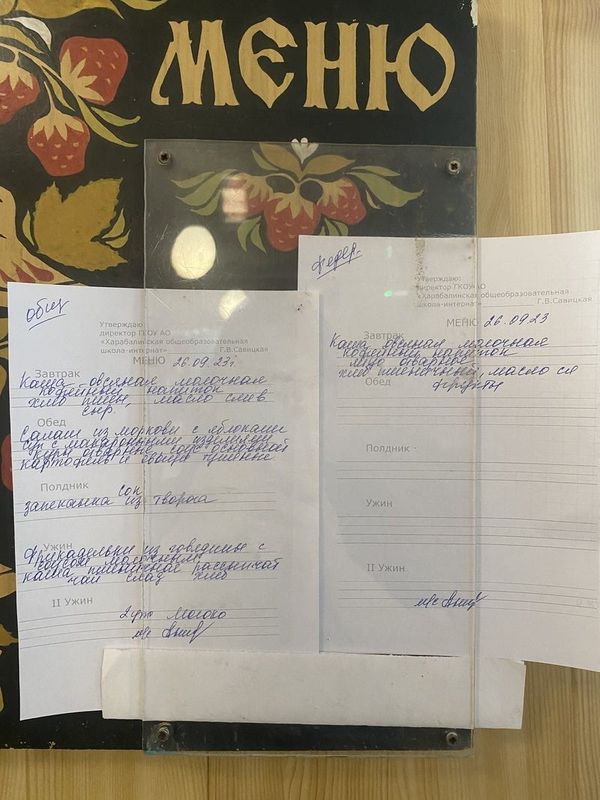 МЕНЮ
общ
Утверждаю
директор ГКОУ АО
«Харабалинская общеобразовательная
школа-интернат» Г.В.Савицкая
МЕНЮ 26.09.23г.
Завтрак
Каша овсяная молочная
кофейный напиток
хлеб пшен, масло слив
сыр.
Обед
Салат из моркови с яблоками
суп с макаронными изделиями
куры отварные соус основной
картофель и овощи тушеные
Полдник
сок
запеканка из творога
Ужин
Фрикадельки из говядины с
соусом молочным
каша пшеничная рассыпчат
чай слад хлеб
II Ужин
Молоко
м/с
Федер.
Утверждаю:
директор ГКОУ АО
«Харабалинская общеобразовательная
школа-интернат» Г.В.Савицкая
МЕНЮ 26.09.23
Завтрак
Каша овсяная молочная
кофейный напиток
яйцо отварное
хлеб пшеничный, масло сл
Обед фрукты
Полдник
Ужин
II Ужин
м/с